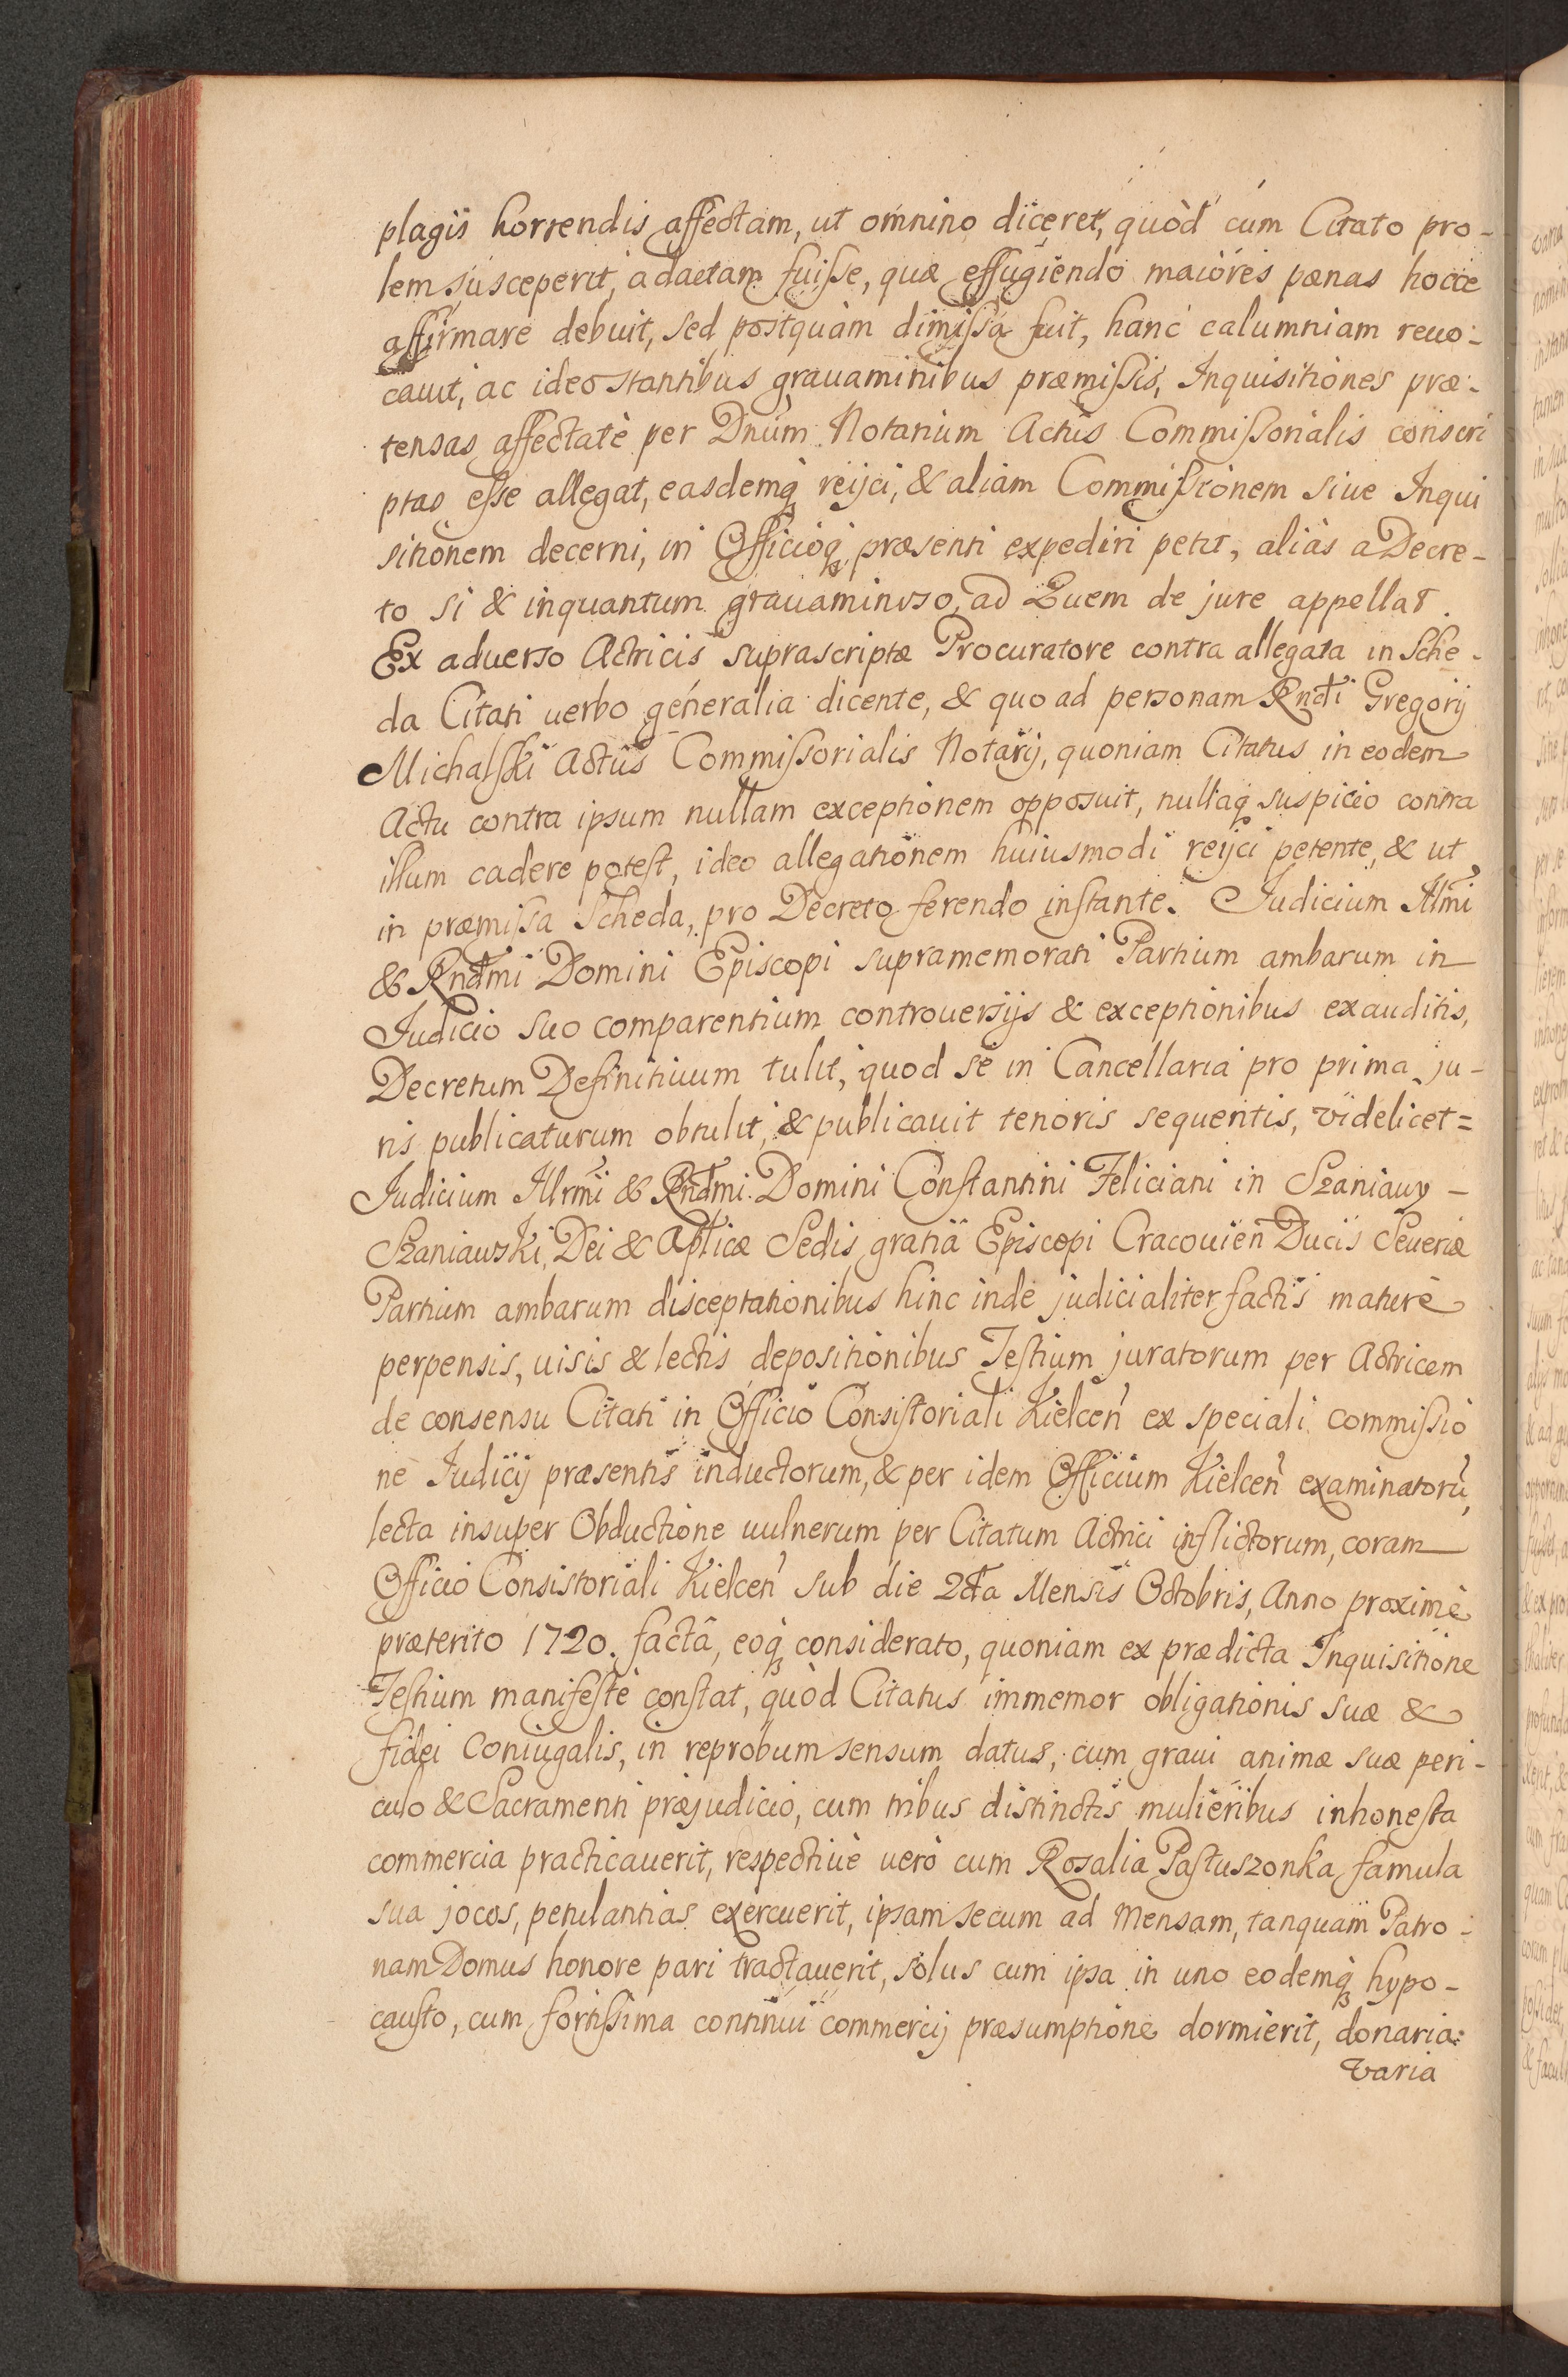 plagis horrendis affectam, ut omnino diceret, quòd cum Citato pro-
lem susceperit, adactam fuisse, quæ effugiendo maiores pœnas hocce
affirmare debuit, sed postquam dimissa fuit, hanc calumniam reuo-
cauit, ac ideo stantibus grauaminibus præmissis, Inquisitiones præ-
tensas affectatè per Dnum Notarium Actûs Commissorialis conscri
ptas esse allegat, easdemq; reijci, & aliam Commissionem siue Inqui
sitionem decerni, in Officioq; præsenti expediri petit, aliàs a Decre-
to si & inquantum grauaminoso, ad Quem de jure appellat.
Ex aduerso Actricis suprascriptæ Procuratore contra allegata in Sche-
da Citati uerbo generalia dicente, & quo ad personam Rndi Gregorij
Michalski Actûs Commissorialis Notarij, quoniam Citatus in eodem
Actu contra ipsum nullam exceptionem opposuit, nullaq; suspicio contra
illum cadere potest, ideo allegationem huiusmodi reijci petente, & ut
in præmissa Scheda, pro Decreto ferendo instante. Judicium Illmi
& Rndmi Domini Episcopi supramemorati Partium ambarum in
Judicio suo comparentium controuersijs & exceptionibus exauditis,
Decretum Definitiuum tulit, quod se in Cancellaria pro prima ju-
ris publicaturum obtulit, & publicauit tenoris sequentis, videlicet=
Judicium Illrmi & Rndmi Domini Constantini Feliciani in Szaniawy -
Szaniawski, Dei & Aplicæ Sedis gratiâ Episcopi Cracouien Ducis Seueriæ
Partium ambarum disceptationibus hinc inde judicialiter factis maturè
perpensis, uisis & lectis depositionibus Testium juratorum per Actricem
de consensu Citati in Officio Consistoriali Kielcen ex speciali commissio
ne Judicij præsentis inductorum, & per idem Officium Kielcen examinatorũ,
lecta insuper Obductione uulnerum per Citatum Actrici inflictorum, coram
Officio Consistoriali Kielcen sub die 2da Mensis Octobris, Anno proximè
præterito 1720. factâ, eoq; considerato, quoniam ex prædicta Inquisitione
Testium manifestè constat, quòd Citatus immemor obligationis suæ &
fidei Coniugalis, in reprobum sensum datus, cum graui animæ suæ peri-
culo & Sacramenti præjudicio, cum tribus distinctis mulieribus inhonesta
commercia practicauerit, respectiuè uerò cum Rosalia Pastuszonka famula
sua jocos, petulantias exercuerit, ipsam secum ad Mensam, tanquam Patro-
nam Domus honore pari tractauerit, solus cum ipsa in uno eodemq; hypo-
causto, cum fortissima continui commercij præsumptione dormierit, donaria
varia